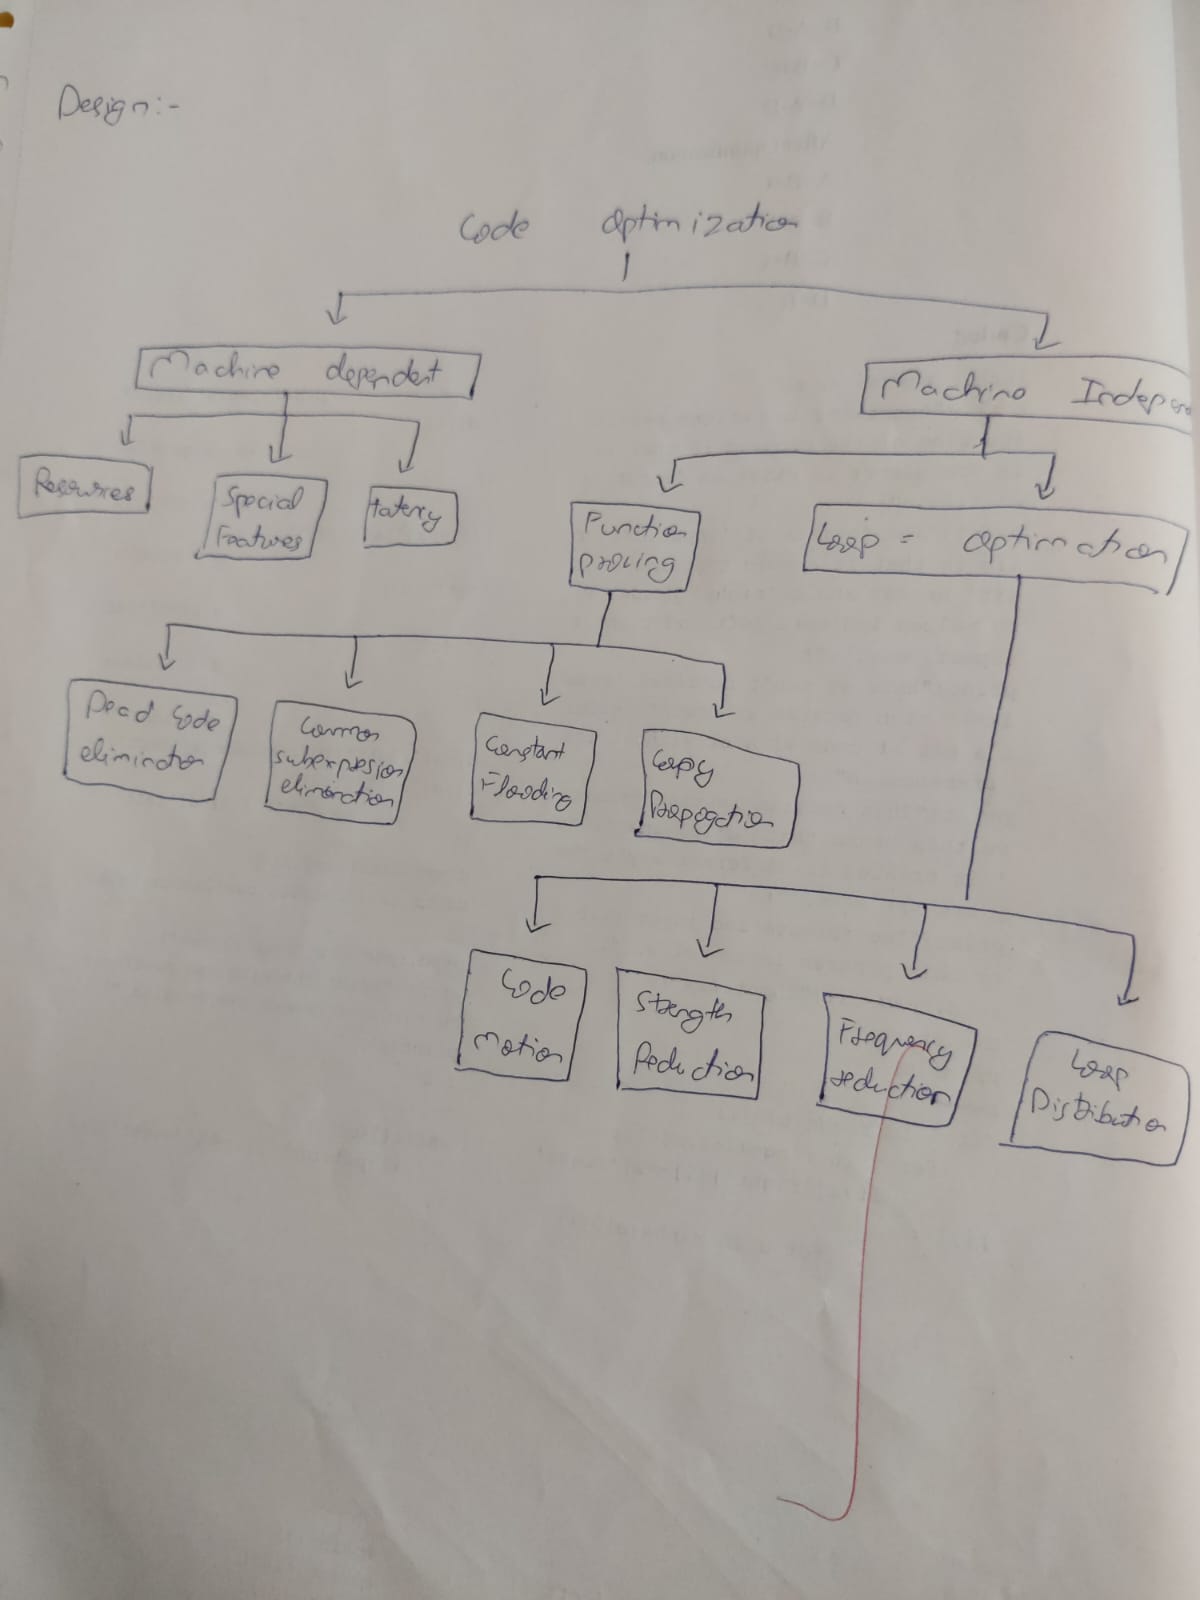 Design:-
Code Optimization
Machine dependent
Machine Indepen
Resources
Special
Features
latency
Function
Loop = Optimation
Dead Code
elimination
Common
subexpression
elimination
Constant
Flooding
Copy
Propogation
Code
motion
Strength
Reduction
Frequency
reduction
Loop
Distribution